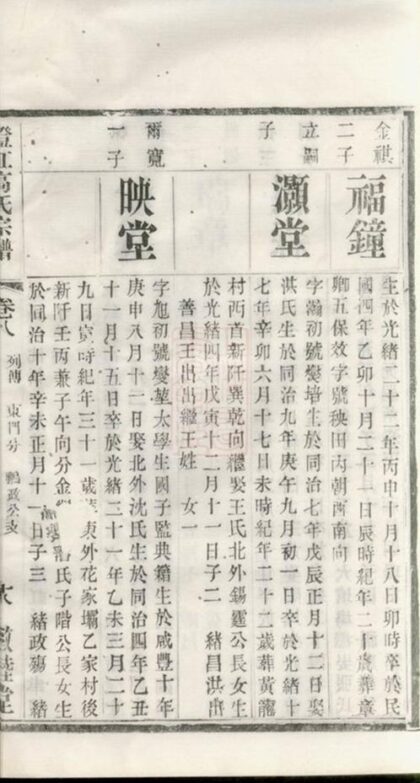 金祺
二子
福鐘
生於光緒二十二年丙申十月十八日卯時卒於民
國四年乙卯十月二十一日辰時紀年二十歲葬章
卿五保效字號秧田內朝西南向
立嗣
子王
灝堂
字瀚初號燮培生於同治七年戊辰正月十二日娶
洪氏生於同治九年庚午九月初一日卒於光緒十
七年辛卯六月十七日未時紀年二十二歲葬黃龍
村西首新阡巽乾向繼娶王氏北外錫霆公長女生
於光緒四年戊寅十二月十一日子二 緒昌洪出
善昌王出出繼王姓 女一
雨寬
一子
映堂
字旭初號燮棻太學生國子監典籍生於咸豐十年
庚申八月十一日娶北外沈氏生於同治四年乙丑
十一月十五日卒於光緒二十一年乙未三月二十
九日寅時紀年三十一歲葬東外花家壩乙家村後
新阡壬丙兼子午向分金 氏子階公長女生
於同治十年辛未正月十一日子三 緒政殤 緒
澄江高氏宗譜
卷八
列傳 東門分 鵬政公支